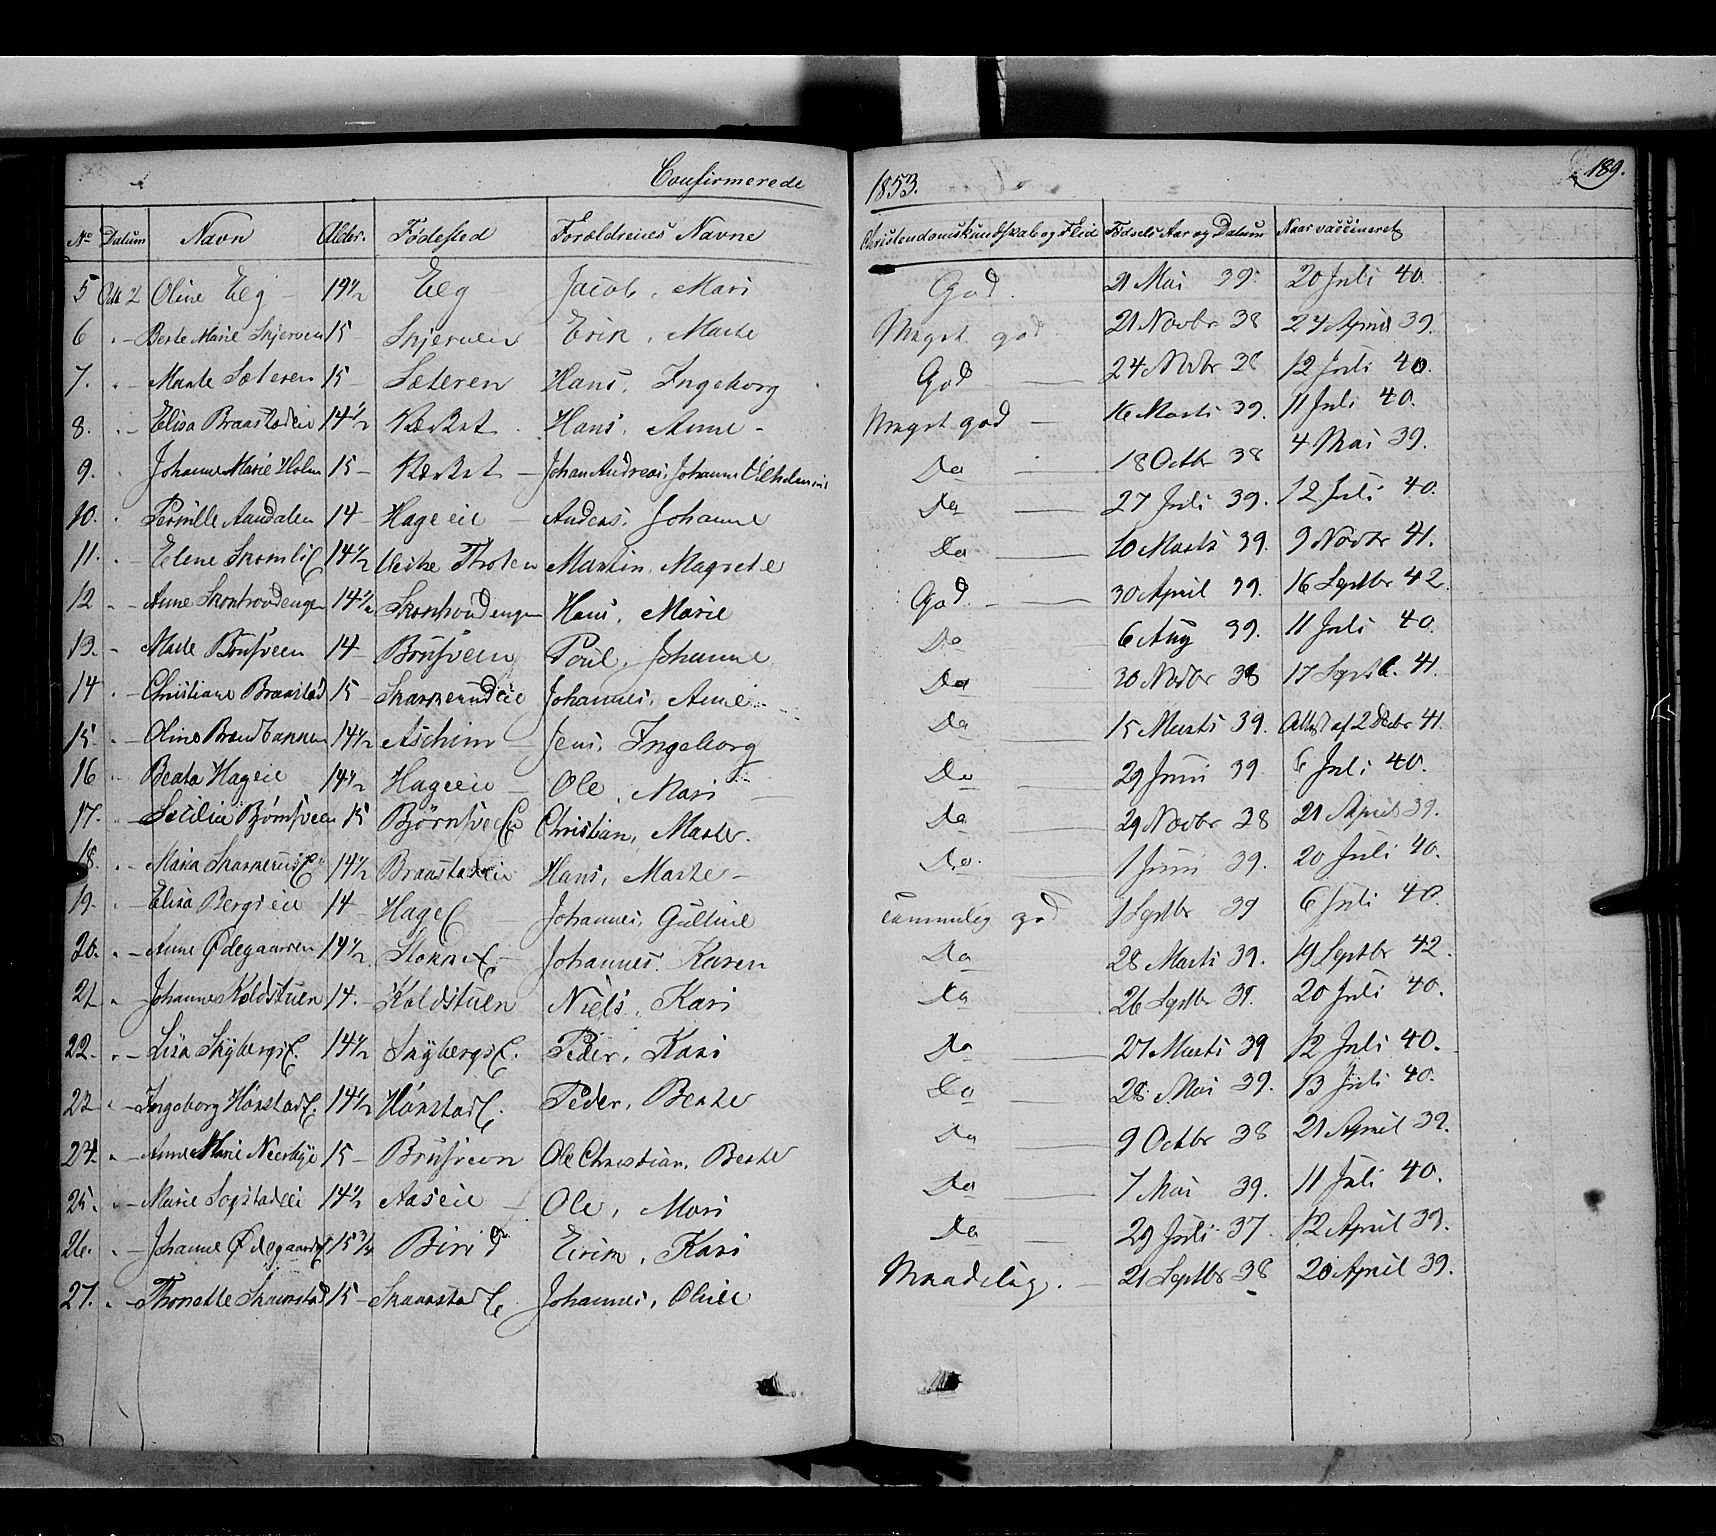 Confirmerede 1853. 189.
No Datum Navn Alder. Fødested Forældrenes Navne Christendomskundskab og Flid Fødsels Aar og Datum Naar vaccineret
5 Octb 2 Oline Eeg - 14½ Eeg - Jacob, Mari God. 21 Mai 39. 20 Juli 40.
6 - Berte Marie Skjerven 15 - Skjerven Erik, Marte Meget god 21 Novbr 38 24 April 39.
7. - Marte Sæteren 15 - Sæteren Hans, Ingeborg God 24 Novbr 38 12 Juli 40.
8. - Elisa Braastadeie 14½ Hans, Anne - Meget god - 16 Marts 39. 11 Juli 40.
9. Johanne Marie Holm 15 - Johan Andreas, Johanne Vilhelmine Do 18 Octbr 38 4 Mai 39.
10. Pernille Aandalen 14 - Hageeie - Anders, Johanne Do 27 Juli 39. 12 Juli 40.
11. - Elene 14½ Vestre Thoten Martin, Magrete Do 10 Marts 39. 9 Novbr 41.
12 - Anne Skonhovdengen 14½ Skonhovdengen Hans, Marie God. 30 April 39. 16 Septbr 42.
13. - Marte Brusveen 14 - Brusveen Poul, Johanne Do 6 Aug 39. 11 Juli 40.
14 - Christiane Braastad 15 - Skarnesudeie Johannes, Anne Do 30 Novbr 38 17 Septb. 41.
15. - Oline 14½ Aschim - Jens, Ingeborg Do 15 Marts 39. Attest af 2 Decbr 41.
16 - Beata Hageie 14½ Hageeie - Ole, Mari Do 29 Juni 39. 6 Juli 40.
17. Secilia Bjørnsveen 15 Bjørnsve E Christian, Marte. Do 29 Novbr 38 21 April 39.
18. - Maria 14½ Braastadeie Hans, Marte - Do. 1 Juni 39. 20 Juli 40.
19. - Elisa Bergseie 14 - Hage E Johannes, Gultine temmelig god 1 Septbr 39 6 Juli 40.
20. - Anne Ødegaarden 14½ Stokke E. - Johannes. Karen Do 28 Marts 39. 19 Septbr 42.
21 - Johannes Koldstuen 14. - Koldstuen Niels, Kari Do 26 Septbr 39. 20 Juli 40.
22. - Lisa Skybergs E. 14½ Skybergs E. Peder, Kari Do 27 Marts 39 12 Juli 40.
23 - Ingeborg Hørstad E. 14½ Hørstad E. Peder, Berte Do 28. Mai 39. 13 Juli 40.
24. - Anne Marie 15 - Brusveen Ole Christian, Berte Do 9 Octbr 38 21 April 39.
25. - Marie Sogstadeie 14½ Aaseie Ole, Mari Do 7 Mai 39. 11 Juli 40.
26. - Johanne Ødegaards E 15¾ Birid Eirim, Kari Do 29 Juli 37. 12 April 39.
27. - Thonette Skaarstad 15 - Skaarstad E. Johannes, Oline Maadelig. - 21 Septbr 38 20 April 39.